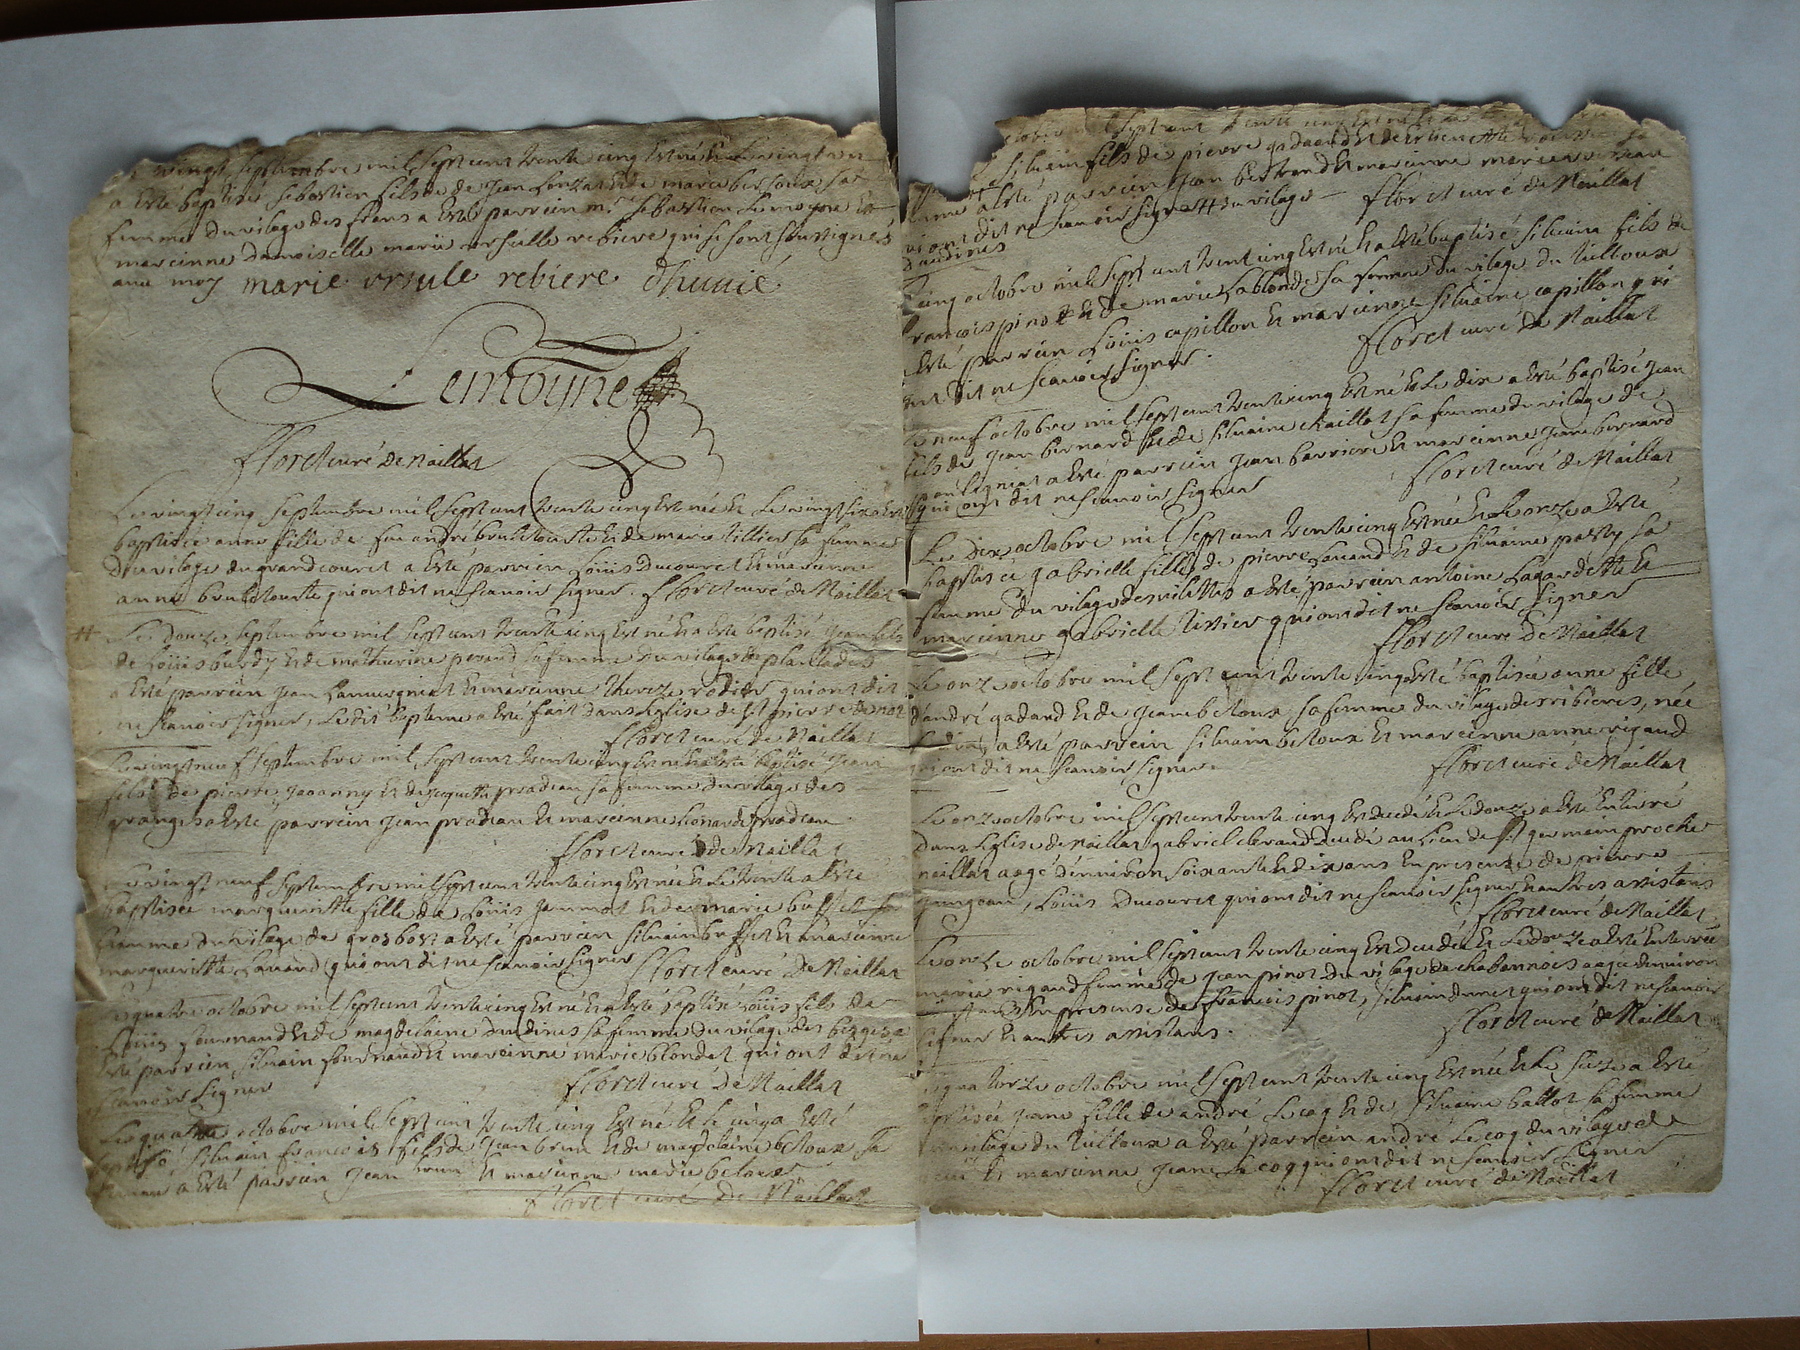 vingt septembre mil sept cent trente cinq est né et le vingt un
a esté baptisé sebastien fils de Jean Lonzat et de marie bersoux sa
femme du vilage des sfens a esté parrein mr sebastien Lemoyne et
mareinne damoiselle marie ursulle rebiere qui se sont soussignés
avec moy marie ursule rebiere dhuvié
Lemoyne
fforest curé de Naillat
Le vingt cinq septembre mil sept cent trente cinq est née et le vingt six a esté
baptisée anne fille de feu andré bruletourte et de marie tillier sa femme
du vilage du grand couret a esté parrein Loüis Ducouret et mareinne
anne bruletourte qui ont dit ne scanoir signer. fforest curé de Naillat
Le douze septembre mil sept cent trente cinq est né et a esté baptisé Jean fils
de Loüis burdy et de mathurine peraud sa femme du vilage de plaillades
a esté parrein jean Lamuergniat et mareinne thereze rodier qui ont dit
ne scanoir signer, Ledit bapteme a esté fait dans Leglise de st pierre
fforest curé de Naillat
Le vingt neuf septembre mil sept cent trente cinq est né et a esté baptisé Jean
fils de pierre Jaoanny et de jacquette pradeau sa femme du vilage des
granges a esté parrein jean pradeau et mareinne Lionarde pradeau
fforest curé de Naillat
Le vingt neuf septembre mil sept cent trente cinq est née et le trente a esté
baptisée margueritte fille de Loüis Jammot et de marie buffet sa
femme du vilage de grosbost a esté parrein silvain buffet et mareinne
margueritte Lavaud qui ont dit ne scanoir signer fforest curé de Naillat
Le quatre octobre mil sept cent trente cinq est né et a esté baptisé Loüis fils de
Loüis fournaud et de magdelaine dudinos sa femme du vilage des
esté parrein silvain fournaud et mareinne marie blondet qui ont dit ne
scanoir signer
fforest curé de Naillat
Le quatre octobre mil sept cent trente cinq est né et le cinq a esté
baptisé silvain francois fils de jean brun et de magdelaine betoux sa
femme a esté parrein jean brun et mareinne marie betoux
fforest curé de Naillat
octobre mil sept cent trente cinq
silvain fils de pierre gadaud et de
a esté parrein jean bertrand et mareinne
ont dit ne scanoir signer du vilage fforest curé de Naillat
dudinos
cinq octobre mil sept cent trent cinq est né et a esté baptisé silvain fils de
francois pinot et de marie Lablonde sa femme du vilage du tuilloux
a esté parrein Loüis capillon et mareinne silvaine capillon qui
ont dit ne scanoir signer. fforest curé de Naillat
Le neuf octobre mil sept cent trente cinq est né et le dix a esté baptisé jean
fils de jean bernard et de silvaine chaillat sa femme du vilage de
a esté parrein jean barriere et mareinne jeane bernard
qui ont dit ne scanoir signer fforest curé de Naillat
Le dix octobre mil sept cent trente cinq est née et le onze a esté
baptisée gabrielle fille de pierre Lavaud et de silvaine parby sa
femme du vilage desvilettes a esté parrein antoine Lagardette et
mareinne gabrielle tixier qui ont dit ne scanoir signer
fforest curé de Naillat
Le onze octobre mil sept cent trente cinq a esté baptisée anne fille
d'andré gadaud et de jeane betoux sa femme du vilage des ribieres, née
a esté parrein silvain betoux et mareinne anne rigaud
qui ont dit ne scanoir signer. fforest curé de Naillat
Le onze octobre mil sept cent trente cinq est decedé et le douze a esté enterré
dans Leglise de Naillat gabriel ebraud decedé au Lieu de st germain proche
naillat aagé d'environ soixante et dix ans en presence de pierre
junjaud, Loüis Ducouret qui ont dit ne scanoir signer et autres assistans
fforest curé de Naillat
Le onze octobre mil sept cent trente cinq est decedée et le douze a esté enterrée
marie rigaud femme de jean pinot du vilage de chabannois aagée denviron
ans en presence de francois pinot, silvain dunet qui ont dit ne scanoir
signer et autres assistans. fforest curé de Naillat
Le quatorze octobre mil sept cent trente cinq est née et le seize a esté
baptisée jeane fille de andré Lecoq et de silvaine ballot sa femme
du vilage du tuilloux a esté parrein andré Lecoq du vilage de
et mareinne jeane Lecoq qui ont dit ne scanoir signer
fforest curé de Naillat